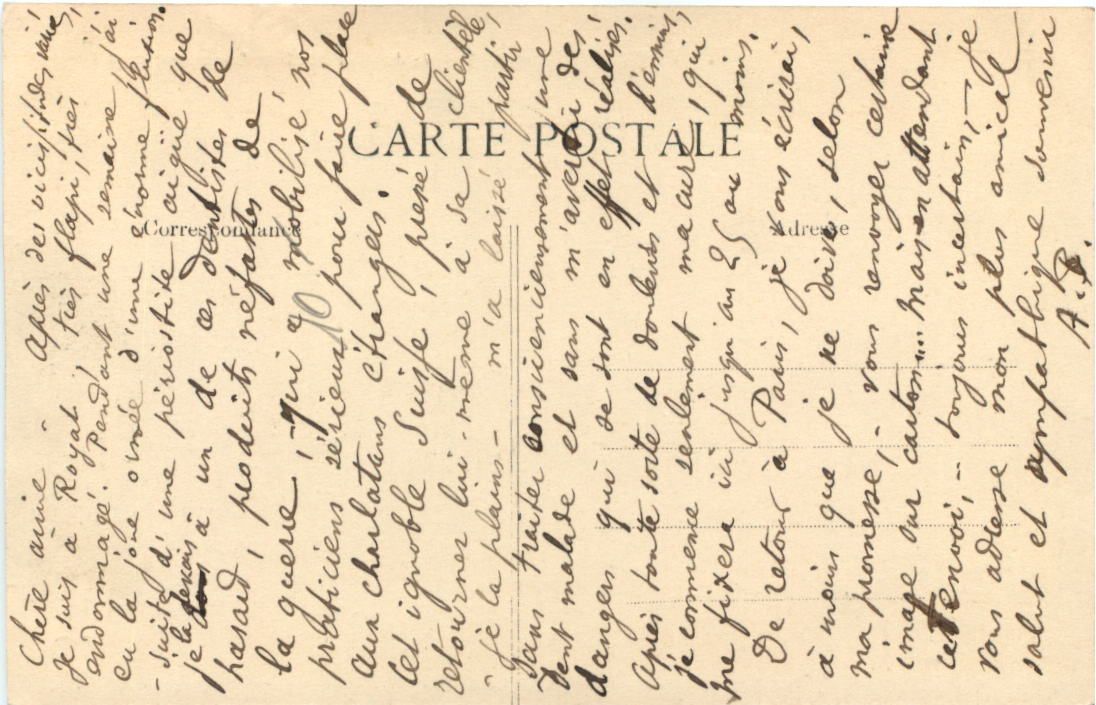 CARTE POSTALE
Correspondance
Adresse
10
Chère amie - Après des vicissitudes
je suis à Royat, très flapi, très
endommagé. Pendant une semaine j'ai
eu la joue ornée d'une énorme fluxion.
- suite d'une périostite aiguë que
je la devais à un de ces dentistes de
hasard, produits néfastes de
la guerre, - qui a mobilisé nos
praticiens sérieux pour faire place
aux charlatans étrangers.
Cet ignoble Suisse, pressé de
retourner lui-même à sa clientèle,
- je la plains - m'a laissé partir
sans traiter consciencieusement une
dent malade et sans m'avertir des
dangers qui se sont en effet réalisés.
Après toute sorte de douleurs et d'ennuis,
je commence seulement ma cure, qui
me fixera ici jusqu'au 25 au moins.
De retour à Paris, je vous écrirai,
à moins que je ne doive, selon
ma promesse, - vous renvoyer certaine
image sur carton... Mais en attendant
cet envoi, - toujours incertain, - je
vous adresse mon plus amical
salut et sympathique souvenir